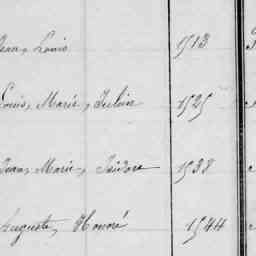 Jean, Louis 1513
Louis, Marie, Julien 1525
Jean, Marie, Isidore 1538
Auguste, Honoré 1544